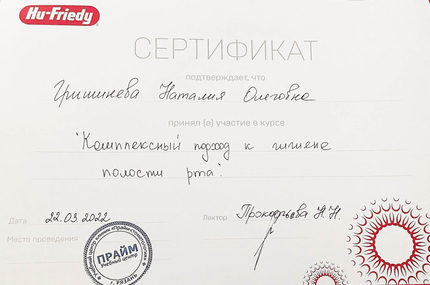 Hu-Friedy
СЕРТИФИКАТ
подтверждает, что
Гришинева Наталия Олеговна
принял (а) участие в курсе
"Комплексный подход к гигиене
полости рта".
Дата 22.03.2022
Лектор Прокофьева Н.Н.
Место проведения
ПРАЙМ
Учебный центр
г. РЯЗАНЬ